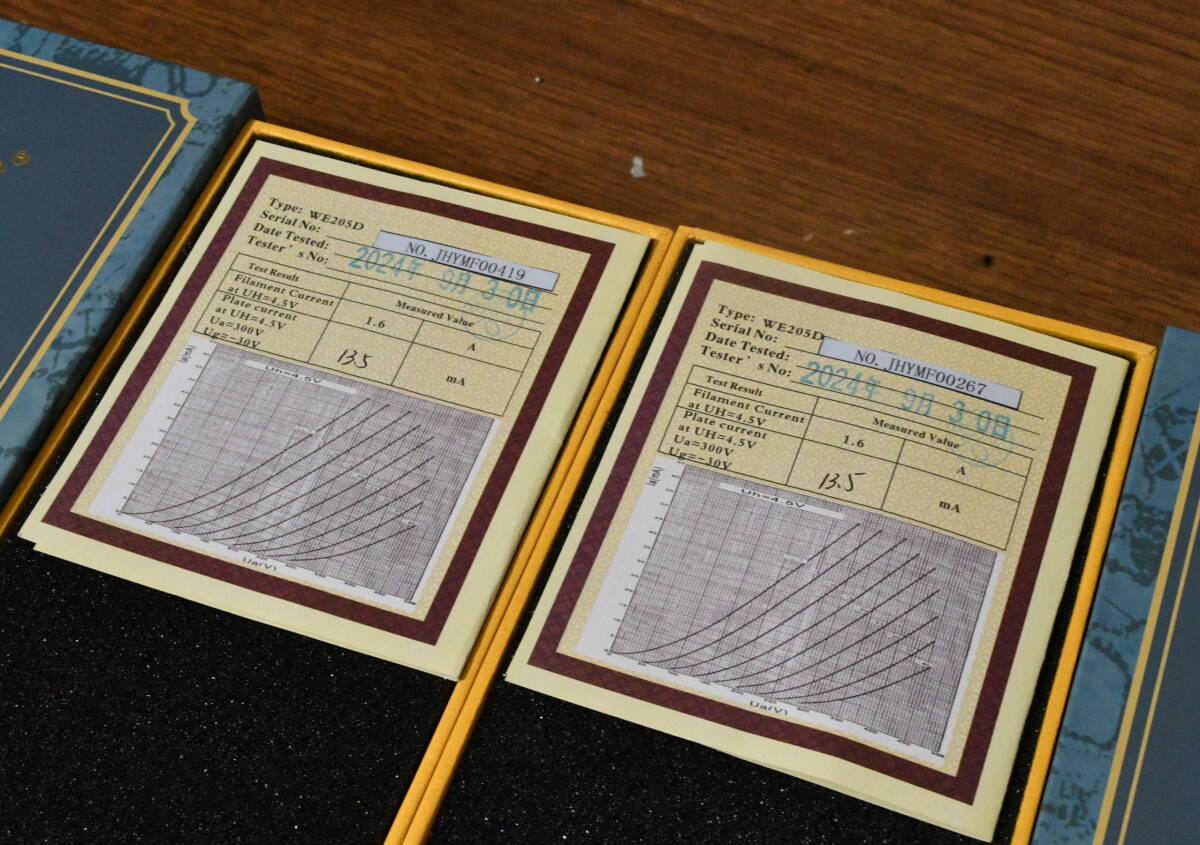 Type: WE205D
Serial No: NO. JHYMF00419
Date Tested: 2024年 9月 30日
Tester's No:
Test Result Measured Value
Filament Current
at UH=4.5V 1.6 A
Plate current
at UH=4.5V
Ua=300V
Ug=-30V 13.5 mA
Ia(mA)
Uh=4.5V
Ua(V)
Type: WE205D
Serial No: NO. JHYMF00267
Date Tested: 2024年 9月 30日
Tester's No:
Test Result Measured Value
Filament Current
at UH=4.5V 1.6 A
Plate current
at UH=4.5V
Ua=300V
Ug=-30V 13.5 mA
Ia(mA)
Uh=4.5V
Ua(V)